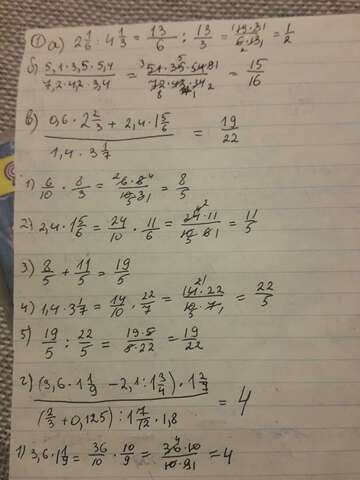 ① а) 2 1/6 : 4 1/3 = 13/6 : 13/3 = 13·3/6·13 = 1/2
б) 5,1·3,5·5,4/7,2·4,2·3,4 = 51·35·54/72·42·34 = 15/16
в) 0,6·2 2/3 + 2,4·1 5/6 / 1,4·3 1/7 = 19/22
1) 6/10 · 8/3 = 6·8/10·3 = 8/5
2) 2,4·1 5/6 = 24/10 · 11/6 = 24·11/10·6 = 11/5
3) 8/5 + 11/5 = 19/5
4) 1,4·3 1/7 = 14/10 · 22/7 = 14·22/10·7 = 22/5
5) 19/5 : 22/5 = 19·5/5·22 = 19/22
г) (3,6·1 1/9 − 2,1:1 3/4)·1 2/7 / (2/3 + 0,125):1 7/12·1,8 = 4
1) 3,6·1 1/9 = 36/10 · 10/9 = 36·10/10·9 = 4